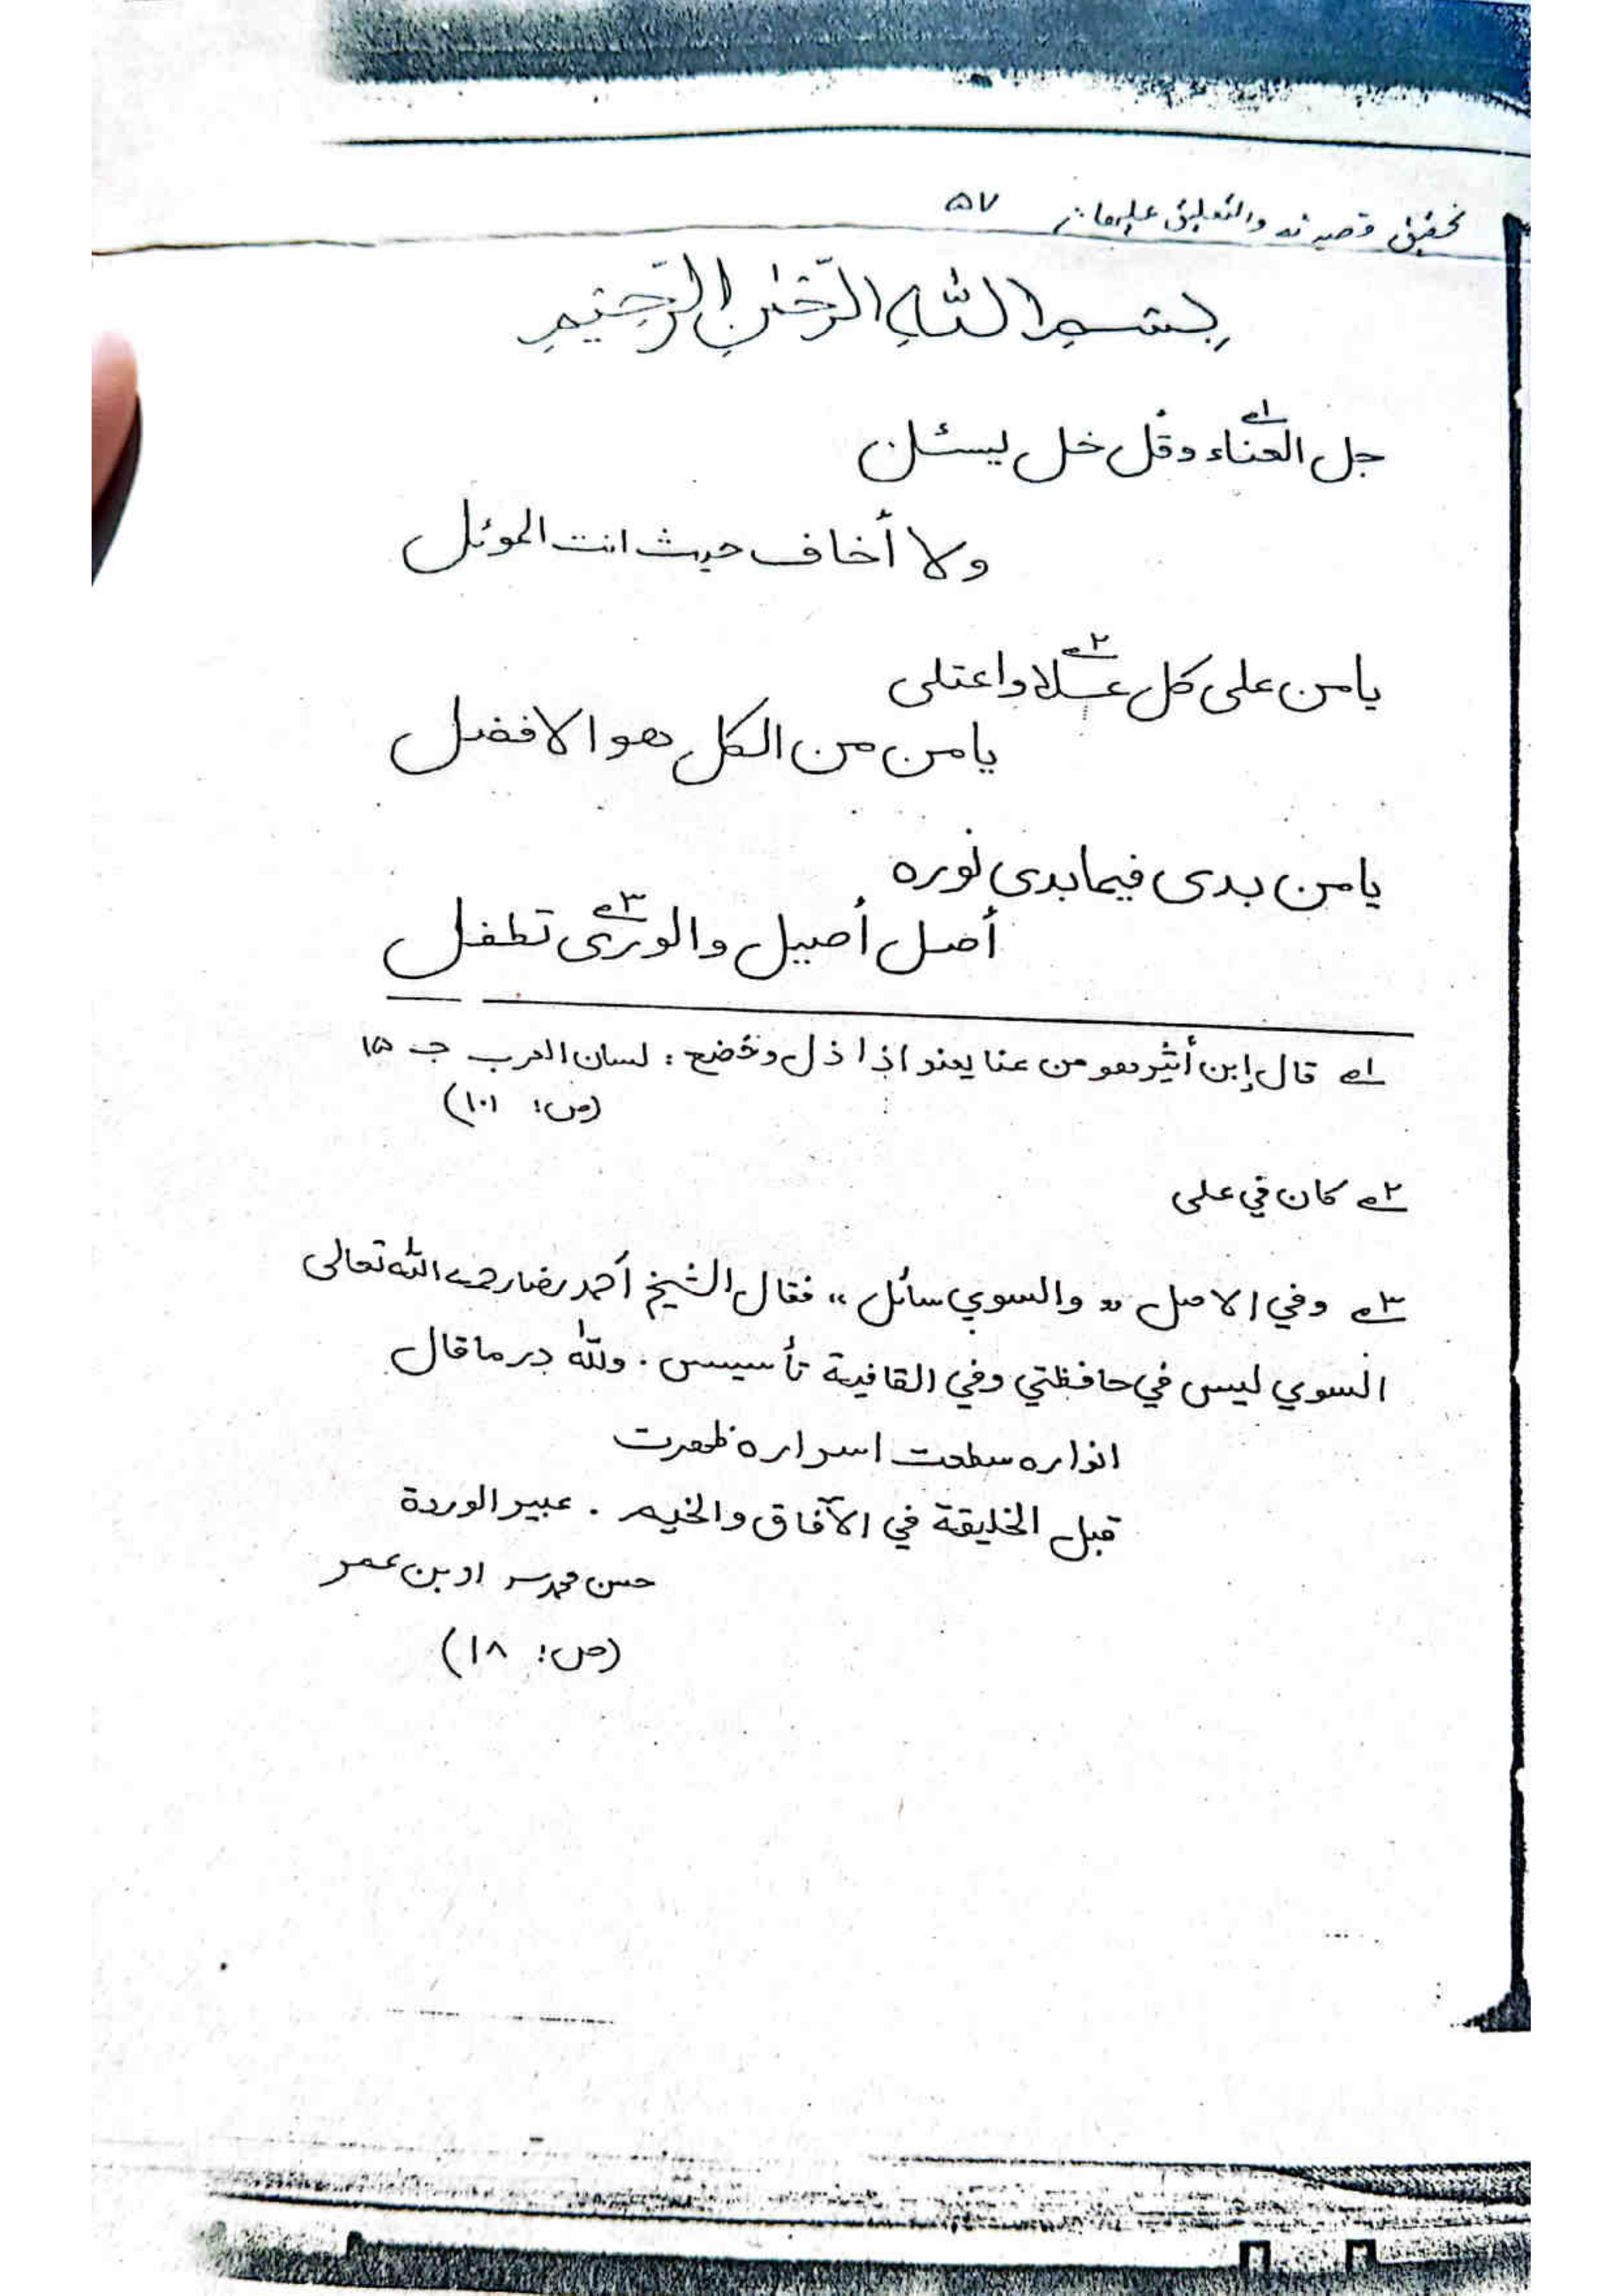 تحقيق قصيدته والتعليق عليها ۵۷
بِسْمِ اللّٰهِ الرَّحْمٰنِ الرَّحِيْمِ
جل العناء۱ وقُل خل يسئل
ولا أخاف حيث انت الموئل
يا من على كل علا۲ واعتلى
يا من من الكل هو الافضل
يا من بدى فيما بدى نوره
أصل أصيل والورى۳ تطفل
۱ قال إبن أثير وهو من عنا يعنو اذا ذل وخضع : لسان العرب ج ۱۵
(ص: ۱۰۱)
۲ كان في على
۳ وفي الاصل ،، والسوي سائل ،، فقال الشيخ أحمد رضا رحمه الله تعالى
السوي ليس في حافظتي وفي القافية تأسيس . ولله در ما قال
انواره سطعت اسراره ظهرت
قبل الخليقة في الآفاق والخيم . عبير الوردة
حسن محمد بن عمر
(ص: ۱۸)